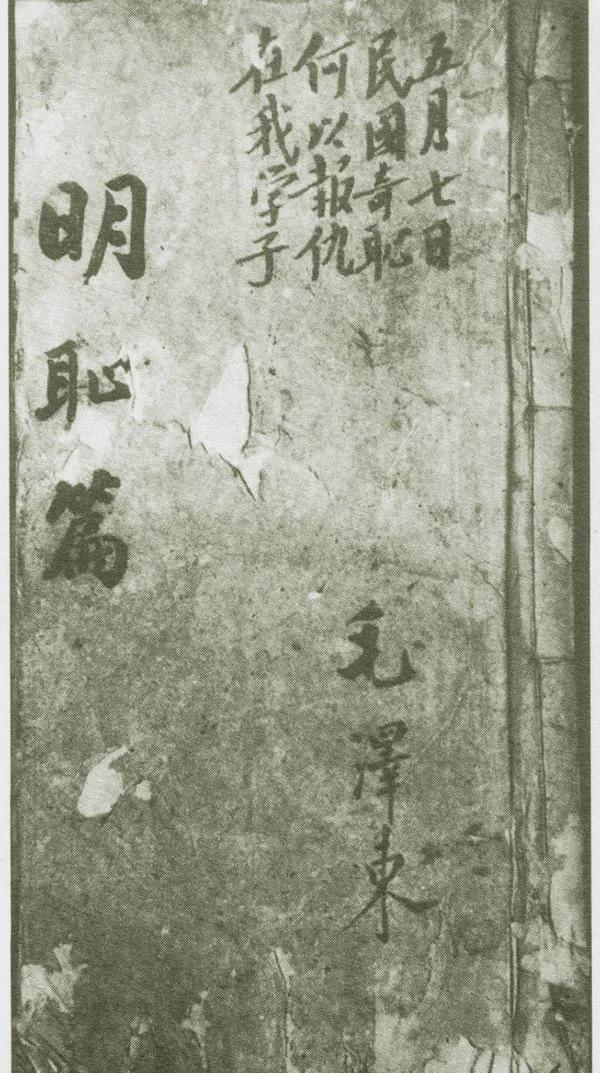 五月七日
民國奇恥
何以報仇
在我学子
明恥篇
毛澤東